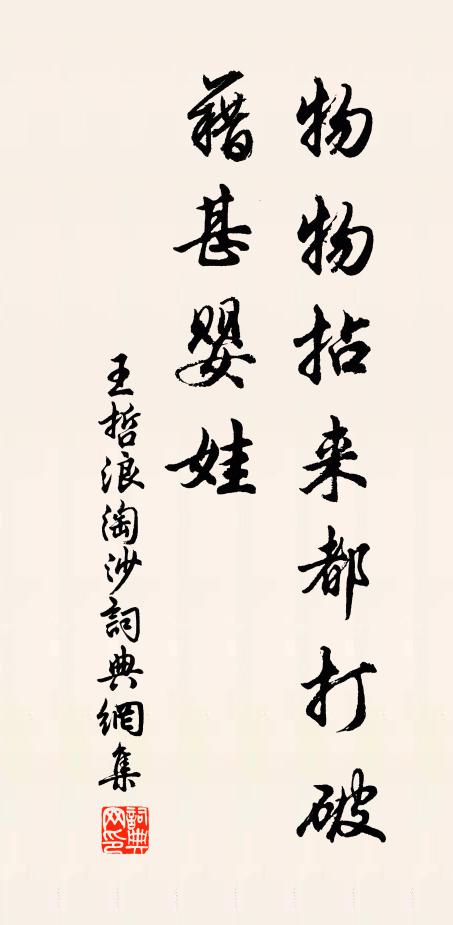 物物拈来都打破
藉甚婴娃
王哲浪淘沙詞典網集
詞典网印